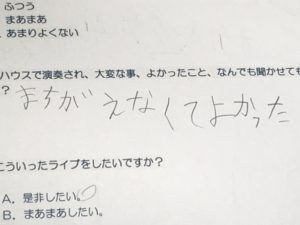 ふつう
まあまあ
あまりよくない
ハウスで演奏され、大変な事、よかったこと、なんでも聞かせても
？まちがえなくてよかった
こういったライブをしたいですか？
A．是非したい。
B．まあまあしたい。